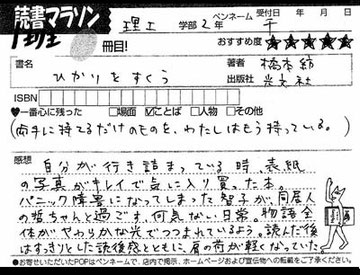 読書マラソン
理工 学部 2年 ペンネーム 千 受付日 年 月 日
冊目! おすすめ度 ★★★★★
書名 ひかりをすくう
著者 橋本紡
出版社 光文社
ISBN
♥一番心に残った □場面 ☑ことば □人物 □その他
(両手に持てるだけのものを、わたしはもう持っている。)
感想
自分が行き詰まっている時、表紙
の写真がキレイで気に入り買った本。
パニック障害になってしまった智子が、同居人
の哲ちゃんと過ごす、何気ない日常。物語全
体がやわらかな光でつつまれているよう。読んだ後
はすっきりとした読後感とともに、肩の荷が軽くなっていた
●お寄せいただいたPOPはペンネームで、店内で掲示、ホームページおよび宣伝物への転載をご了承ください。